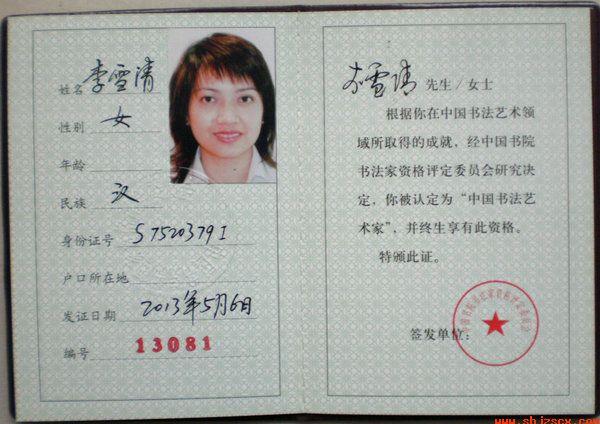 姓名 李雪清
性别 女
年龄
民族 汉
身份证号 S7520379I
户口所在地
发证日期 2013年5月6日
编号 13081
李雪清 先生/女士
根据你在中国书法艺术领
域所取得的成就，经中国书院
书法家资格评定委员会研究决
定，你被认定为“中国书法艺
术家”，并终生享有此资格。
特颁此证。
签发单位：
中国书院书法家资格评定委员会
www.shjzscx.com